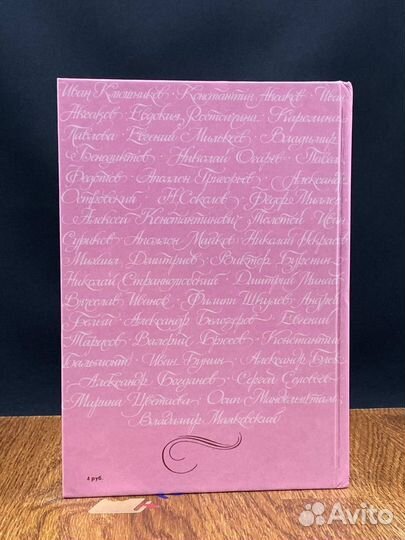 Иван Клюшников · Константин Аксаков · Иван
Аксаков · Евдокия Ростопчина · Каролина
Павлова · Евгений Милькеев · Владимир
Бенедиктов · Николай Огарев · Павел
Федотов · Аполлон Григорьев · Александр
Островский · Н. Соколов · Федор Миллер
Алексей Константинович Толстой · Иван
Суриков · Аполлон Майков · Николай Некрасов
Михаил Дмитриев · Виктор Буренин
Николай Стружниковский · Дмитрий Минаев
Вячеслав Иванов · Филипп Шкулев · Андрей
Белый · Александр Белозеров · Евгений
Тарасов · Валерий Брюсов · Константин
Бальмонт · Иван Бунин · Александр Блок
Александр Богданов · Сергей Соловьев
Марина Цветаева · Осип Мандельштам
Владимир Маяковский
4 руб.
Avito